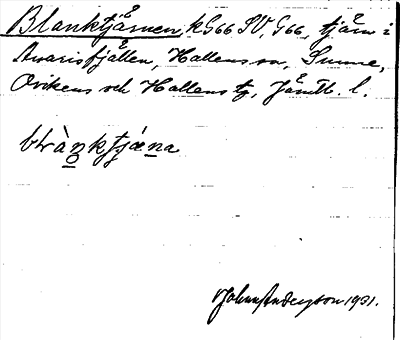 Blanktjärnen, k G66 SV, G66, tjärn i
Anarisfjällen, Hallens sn, Sunne,
Ovikens och Hallens tg, Jämtl. l.
Johan Anderson 1931.